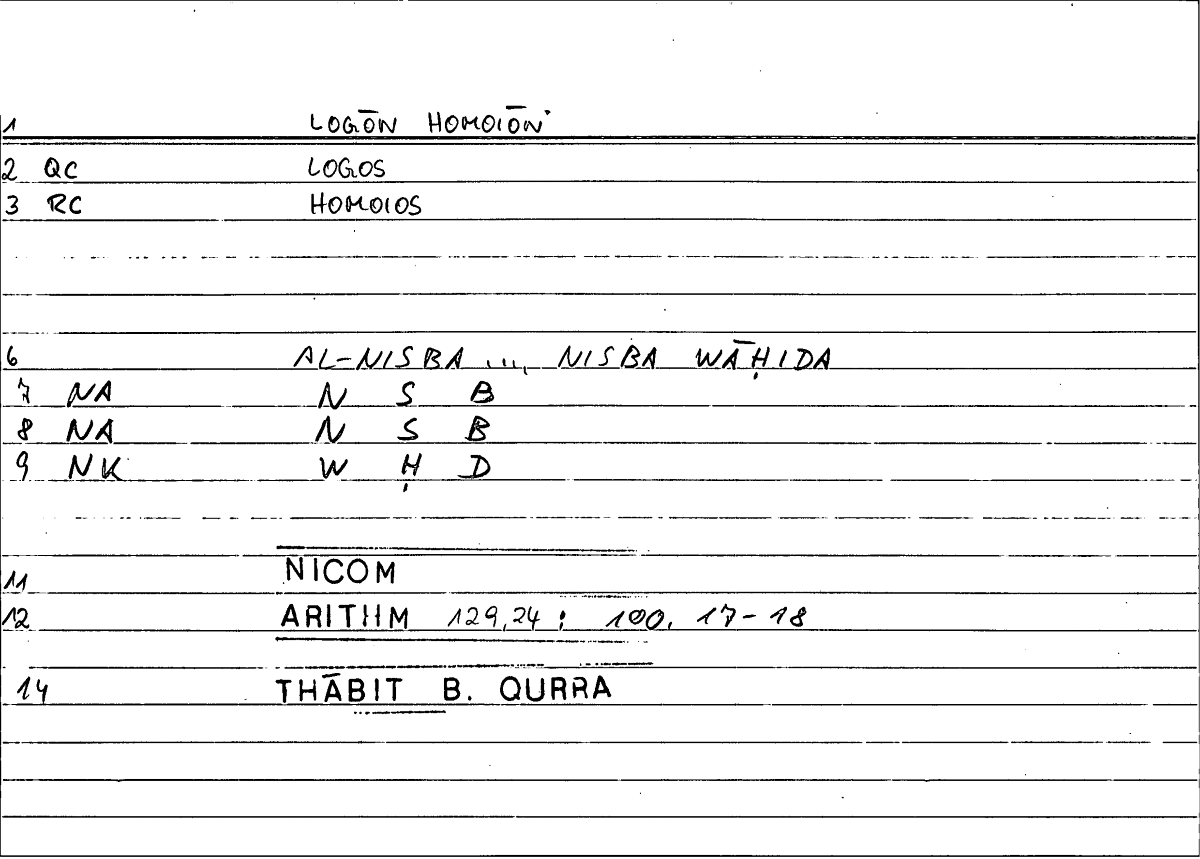 1 LOGŌN HOMOIŌN
2 QC LOGOS
3 RC HOMOIOS
6 AL-NISBA ..., NISBA WĀḤIDA
7 NA N S B
8 NA N S B
9 NK W Ḥ D
11 NICOM
12 ARITHM 129,24 : 100. 17-18
14 THĀBIT B. QURRA